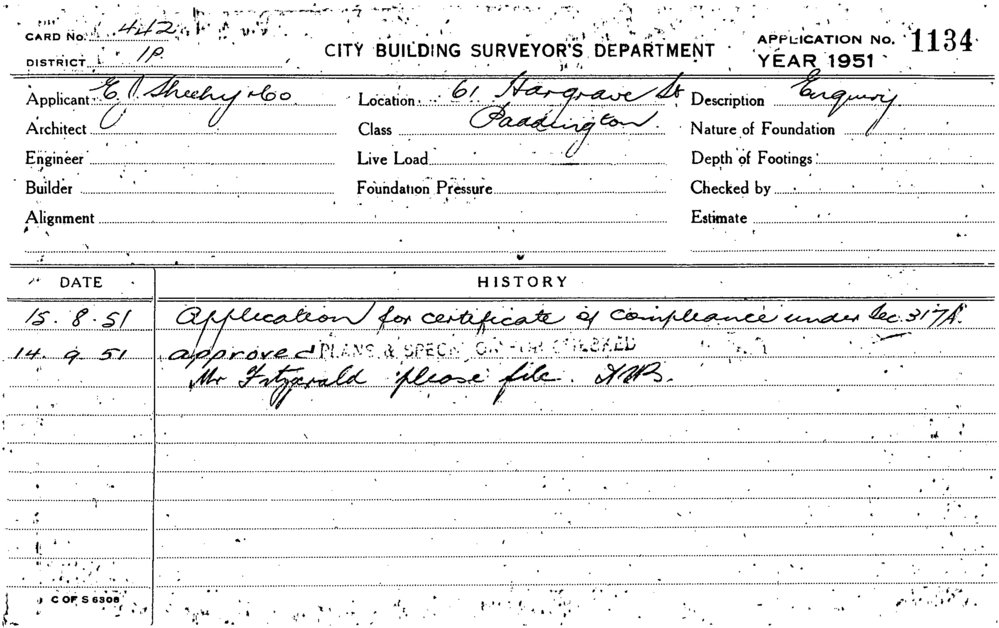 CARD No. 442
CITY BUILDING SURVEYOR'S DEPARTMENT
APPLICATION No. 1134
DISTRICT 1P.
YEAR 1951
Applicant E J Sheehy & Co
Location 61 Hargrave St
Description Enquiry
Architect
Class Paddington.
Nature of Foundation
Engineer
Live Load
Depth of Footings
Builder
Foundation Pressure
Checked by
Alignment
Estimate
DATE HISTORY
15. 8. 51 Application for certificate of compliance under Sec. 317A.
14. 9. 51 approved PLANS &
Mr Fitzgerald please file.
C OF S 6308